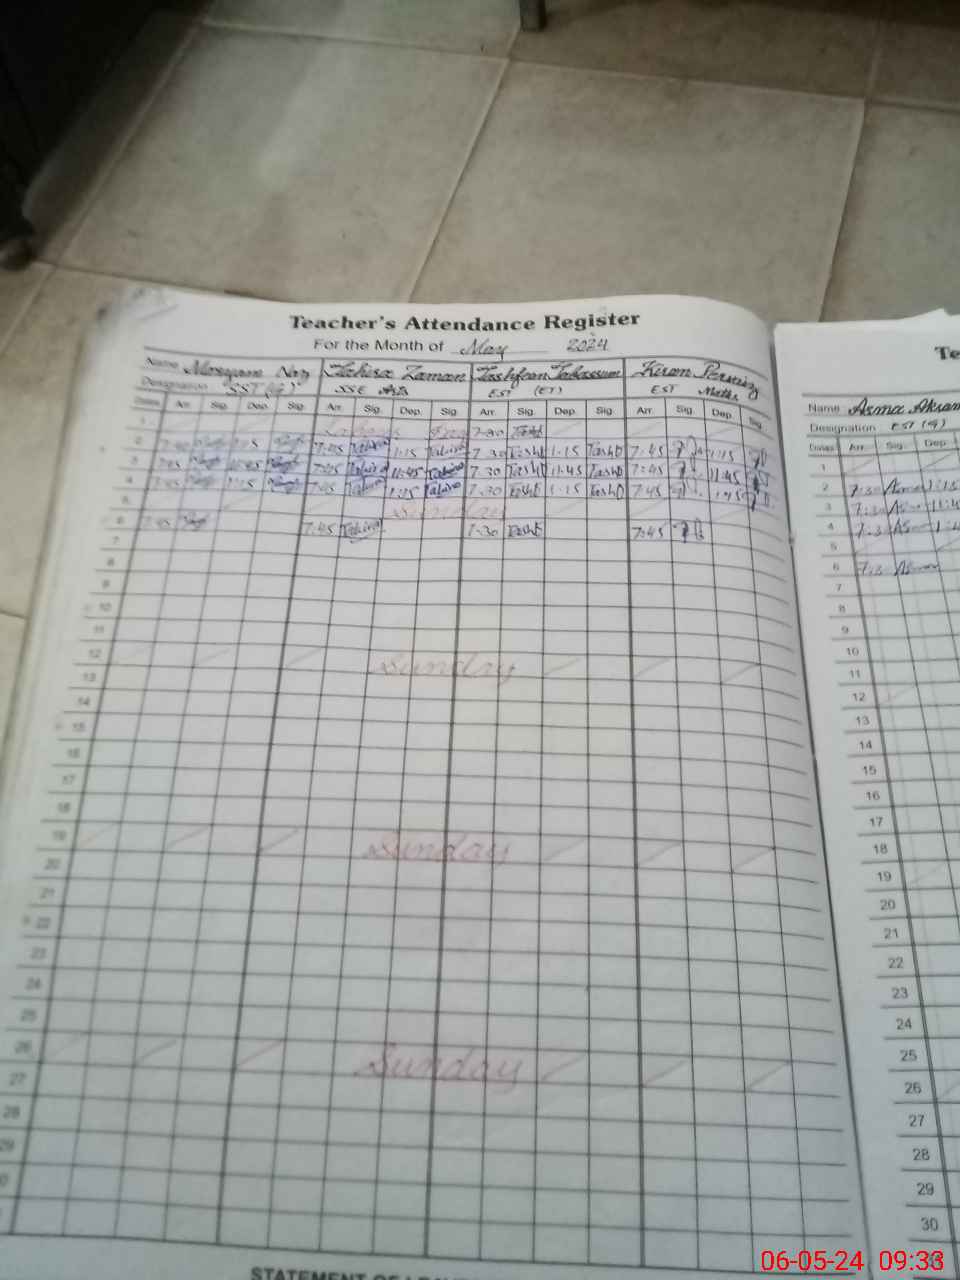 Teacher's Attendance Register
For the Month of May 2024
Name Maryam Naz Tahira Zaman Tashfeen Tabassum Kiran Perveiz
Designation SST (G) SSE Arts EST (ET) EST Maths
Dates Arr. Sig. Dep. Sig. Arr. Sig. Dep. Sig. Arr. Sig. Dep. Sig. Arr. Sig. Dep. Sig.
1 Labour Day 7-30 Tash
2 7:45 1:15 7:45 Tahira 1:15 Tahira 7.30 Tash 1.15 Tash 7.45 1:15
3 7:45 11:45 7:45 Tahira 11:45 Tahira 7.30 Tash 11.45 Tash 7.45 11:45
4 7:45 1:15 7:45 Tahira 1:15 Tahira 7.30 Tash 1.15 Tash 7.45
5 Sunday
6 7:45 7:45 Tahira 7.30 Tash 7:45
7
8
9
10
11
12 Sunday
13
14
15
16
17
18
19 Sunday
20
21
22
23
24
25
26 Sunday
27
28
29
0
STATEMENT OF
Te
Name Asma Akram
Designation EST (G)
Dates Arr. Sig. Dep.
1
2 7:30 Asma 1:15
3 7:30 Asma 11:4
4 7:30 Asma 11:4
5
6 7:30 Asma
7
8
9
10
11
12
13
14
15
16
17
18
19
20
21
22
23
24
25
26
27
28
29
30
06-05-24 09:33